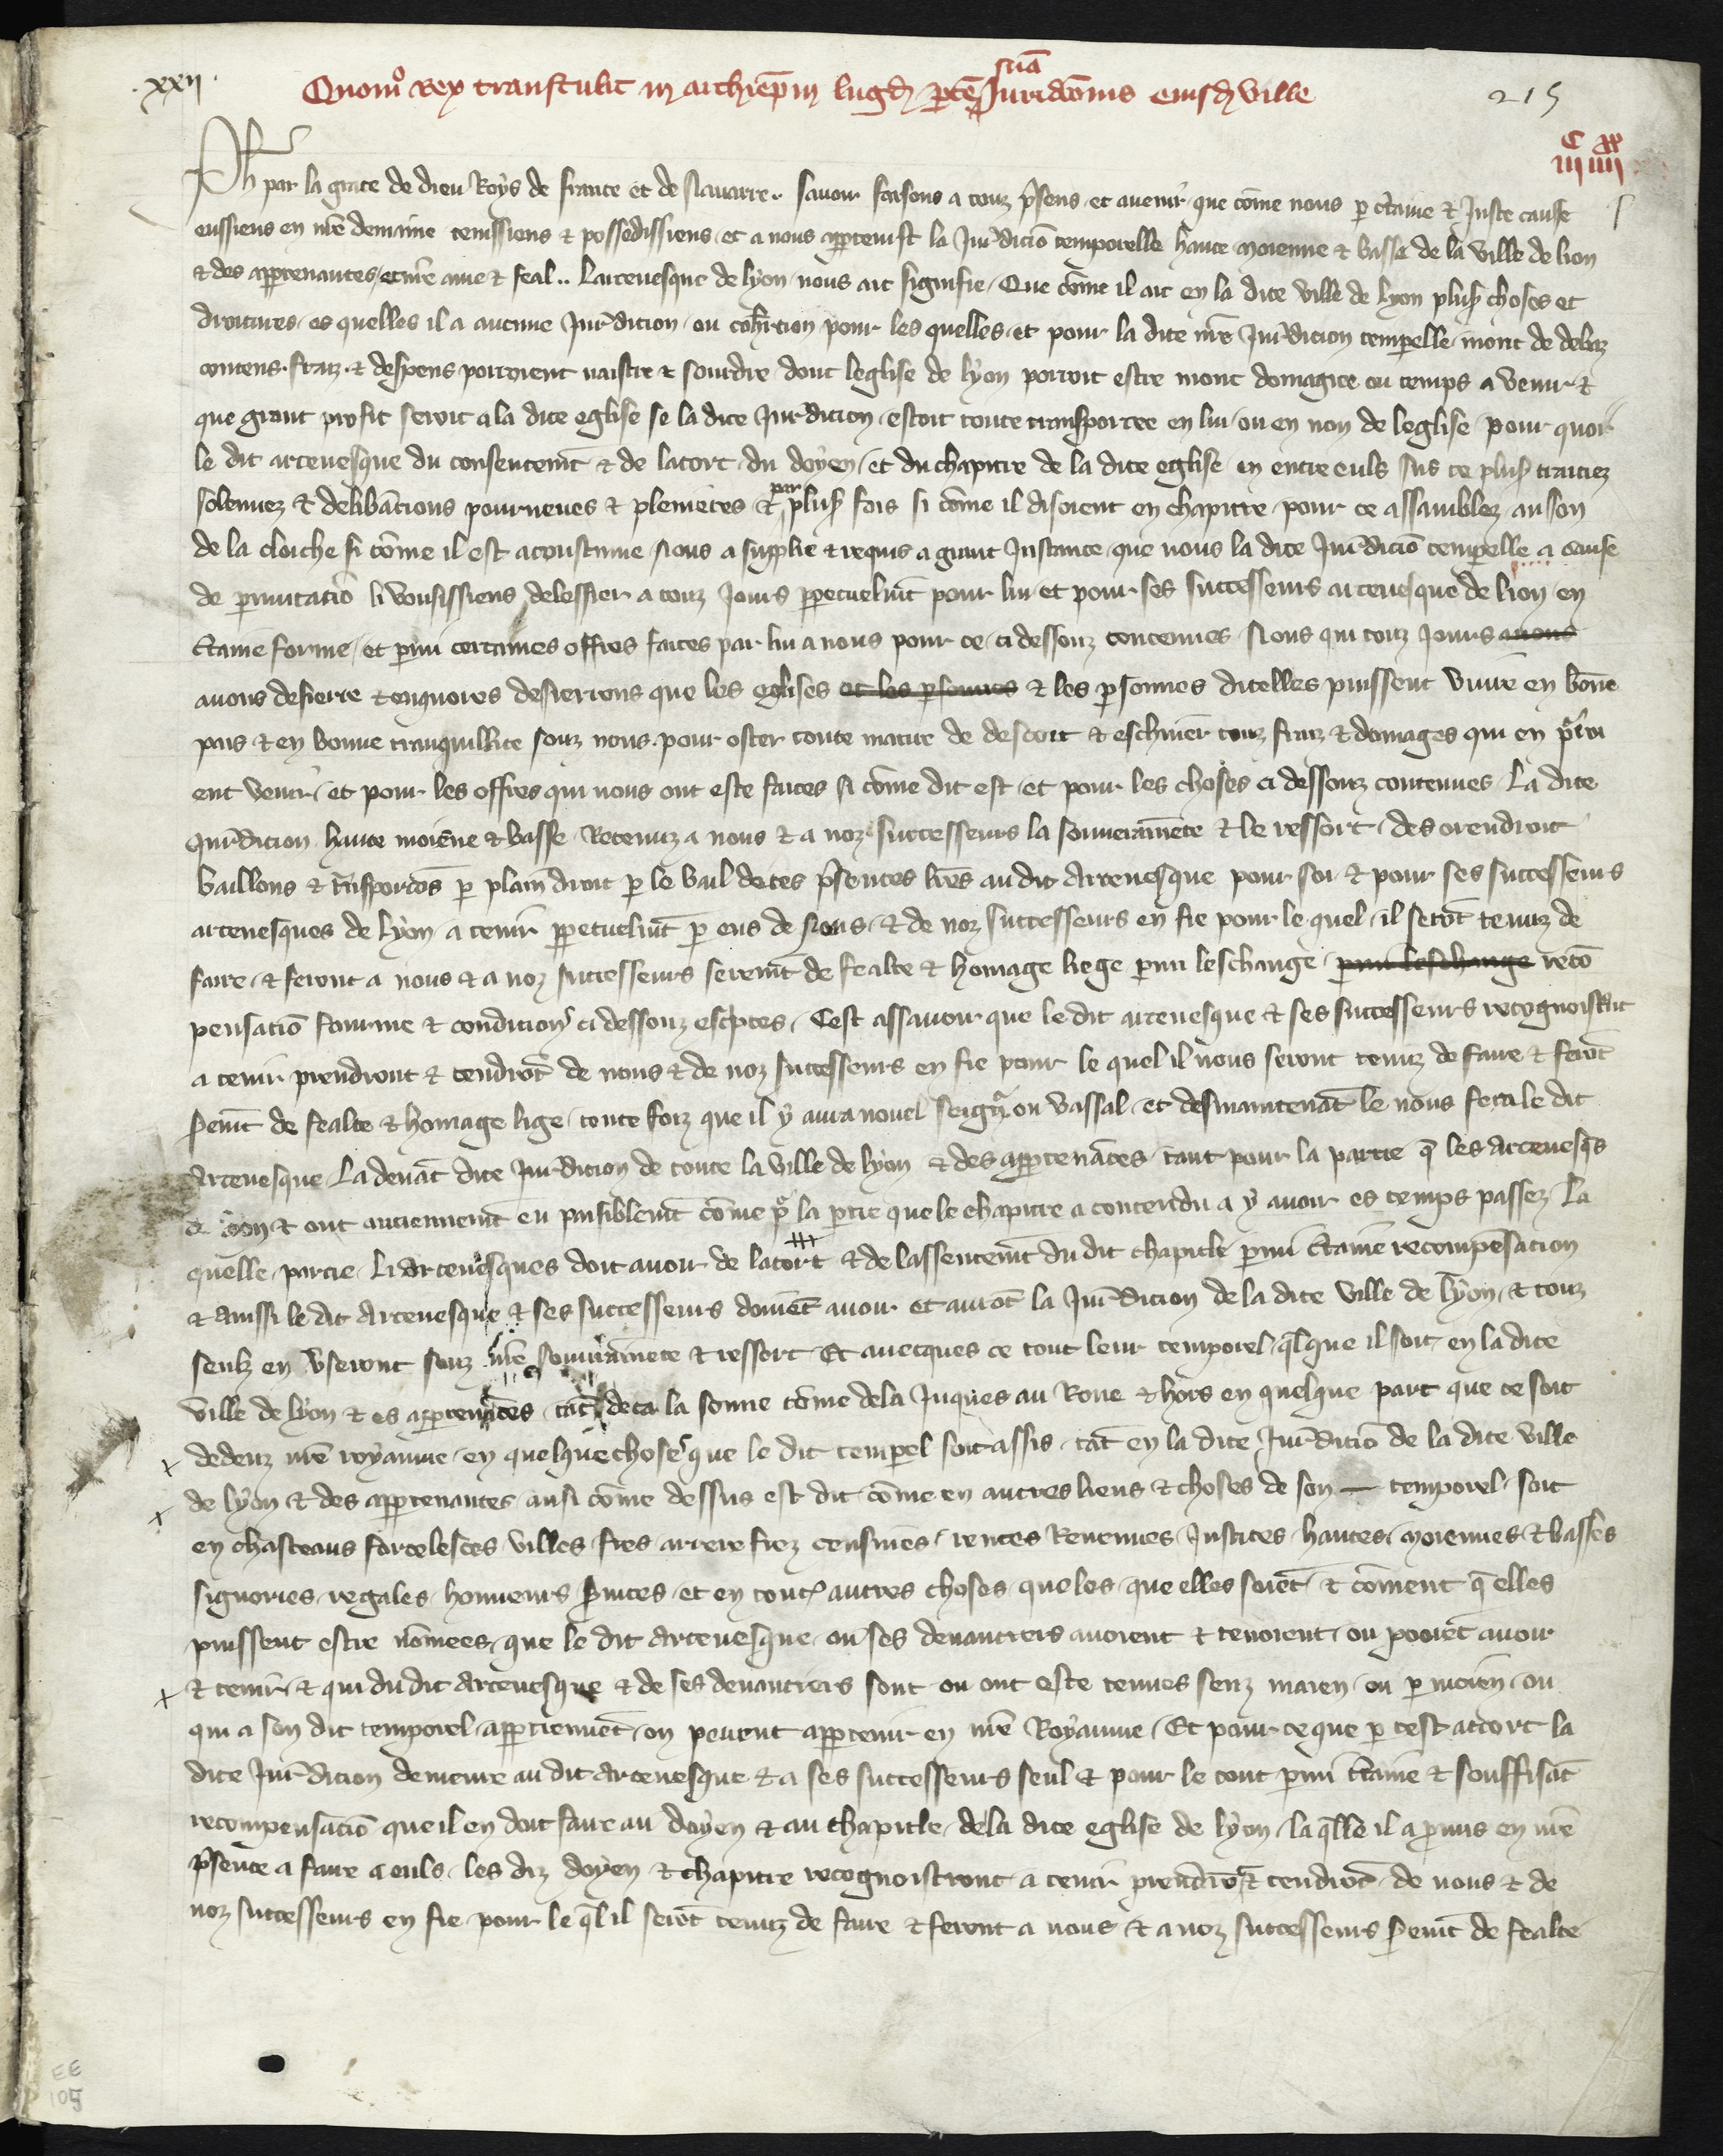 .xxii.
Quom° Rex transtulit in archiep̄m lugd̄ p̄tē suā Juridōnis eiusd̄ ville
215
C xx
iii iiii
Ph par la grace de dieu Roys de france et de Nauarre. sauoir faisons a touz p̄sens et auenir que cōme nous p c̄taine et Juste cause
eussiens en nr̄e demaine tenissiens et possedissiens et a nous appartenist la Jur̄diciō temporelle haute moienne et basse de la ville de lion
et des appartenances, et nr̄e ame et feal .. larceuesque de lyon nous ait signifie Que cōme il ait en la dite ville de lyon plus̄ choses et
droitures es quelles il a aucune Jur̄dicion ou cohercion pour les quelles et pour la dite nr̄e Jur̄dicion temp̄elle mont de debaz
contens. fraiz. et despens porroient naistre et sourdre dont leglise de lyon porroit estre mont domagiee ou temps a venir et
que grant profit seroit a la dite eglise se la dite Jur̄dicion estoit toute transportee en lui ou en non de leglise pour quoi
le dit arceuesque du consentem̄t et de lacort du doyen et du chapitre de la dite eglise en entre euls sus ce plus̄ traitiez
solennez et delib̄acions pourueues et plenieres et par plus̄ fois si cōme il disoient en chapitre pour ce assamblez au son
de la cloiche si cōme il est acoustume Nous a supplie et requis a grant Instance que nous la dite Jur̄diciō temp̄elle a cause
de p̄mutaciō li vousissiens delessier a touz Jours perpetuelm̄t pour lui et pour ses successeurs arceuesque de lion en
c̄taine forme et p̄mi certaines offres faites par lui a nous pour ce ci dessouz contenues Nous qui touz Jours auons
auons desierre et enquores desierrons que les eglises et les p̄sonnes et les p̄sonnes dicelles puissent viure en bōne
pais et en bonne tranquillite souz nous pour oster toute matire de descort et eschiuer touz fraiz et domages qui en p̄roi
ent venir et pour les offres qui nous ont este faites si cōme dit est et pour les choses ci dessouz contenues La dite
Jur̄dicion haute moiēne et basse Retenuz a nous et a noz successeurs la souuerainnete et le ressort des orendroit
baillons et t̄nsportōs p plain droit p le bail de ces p̄sentes lr̄es au dit Arceuesque pour soi et pour ses successeurs
arceuesques de lyon a tenir perpetuelm̄t p eus de Nous et de noz successeurs en fie pour le quel il serōt tenuz de
faire et feront a nous et a noz successeurs serem̄t de fealte et homage liege p̄mi leschange p̄mi leschange recō
pensaciō fourme et condicions ci dessouz esc̄ptes Cest assauoir que le dit arceuesque et ses successeurs recognoistrōt
a tenir prendront et tendrōt de nous et de noz successeurs en fie pour le quel il nous seront tenuz de faire et ferōt
serem̄t de fealte et homage lige toute foiz que il y aura nouel seign̄r ou vassal et desmaintenāt le nous fera le dit
Arceuesque La deuāt dite Jur̄dicion de toute la ville de lyon et des appartenāces tant pour la partie q̄ les arceuesqs
de lyon et ont anciennem̄t eu paisiblem̄t cōme p̄ la p̄tie que le chapitre a contendu a y auoir es temps passez La
quelle partie Li Arceuesques doit auoir de lacort et de lassentem̄t du dit chapitle p̄mi c̄taine recompēsacion
et aussi le dit Arceuesque et ses successeurs doiuēt auoir et aurōt la Jur̄dicion de la dite ville de lyon et touz
seulz en vseront souz nr̄e souuerainnete et ressort Et auecques ce tout leur temporel q̄lque il soit en la dite
ville de lyon et es appartenāces tāt deca la sonne cōme dela Juques au Rone et hors en quelque part que ce soit
dedenz nr̄e royaume en quelque choses que le dit temp̄el soit assis tāt en la dite Jur̄diciō de la dite ville
de lyon et des appartenances ausi cōme dessus est dit cōme en autres liens et choses de son — temporel soit
en chasteaus forcelesces villes fies arrere fiez censiues rentes Reuenues Justices hautes moiennes et basses
signories regales honneurs s̄uices et en toutes autres choses queles que elles soiēt et cōment q̄ elles
puissent estre nōmees que le dit arceuesque ou ses deuantiers auoient et tenoient ou pooiēt auoir
et tenir et qui du dit Arceuesque et de ses deuantiers sont ou ont este tenues senz maien ou p moien ou
qui a son dit temporel appartiennēt ou peuent appartenir en nr̄e Royaume Et pour ce que p cest accort la
dite Jur̄dicion demeure au dit arceuesque et a ses successeurs seul et pour le tout p̄mi c̄taine et souffisāt
recompensaciō que il en doit faire au doyen et au chapitle de la dite eglise de lyon la q̄lle il a p̄mis en nr̄e
p̄sence a faire a euls les diz doyen et chapitre recognoistront a tenir prendrōt et tendrōt de nous et de
noz successeurs en fie pour le q̄l il serōt tenuz de faire et feront a nous et a noz successeurs serem̄t de fealte
EE
105